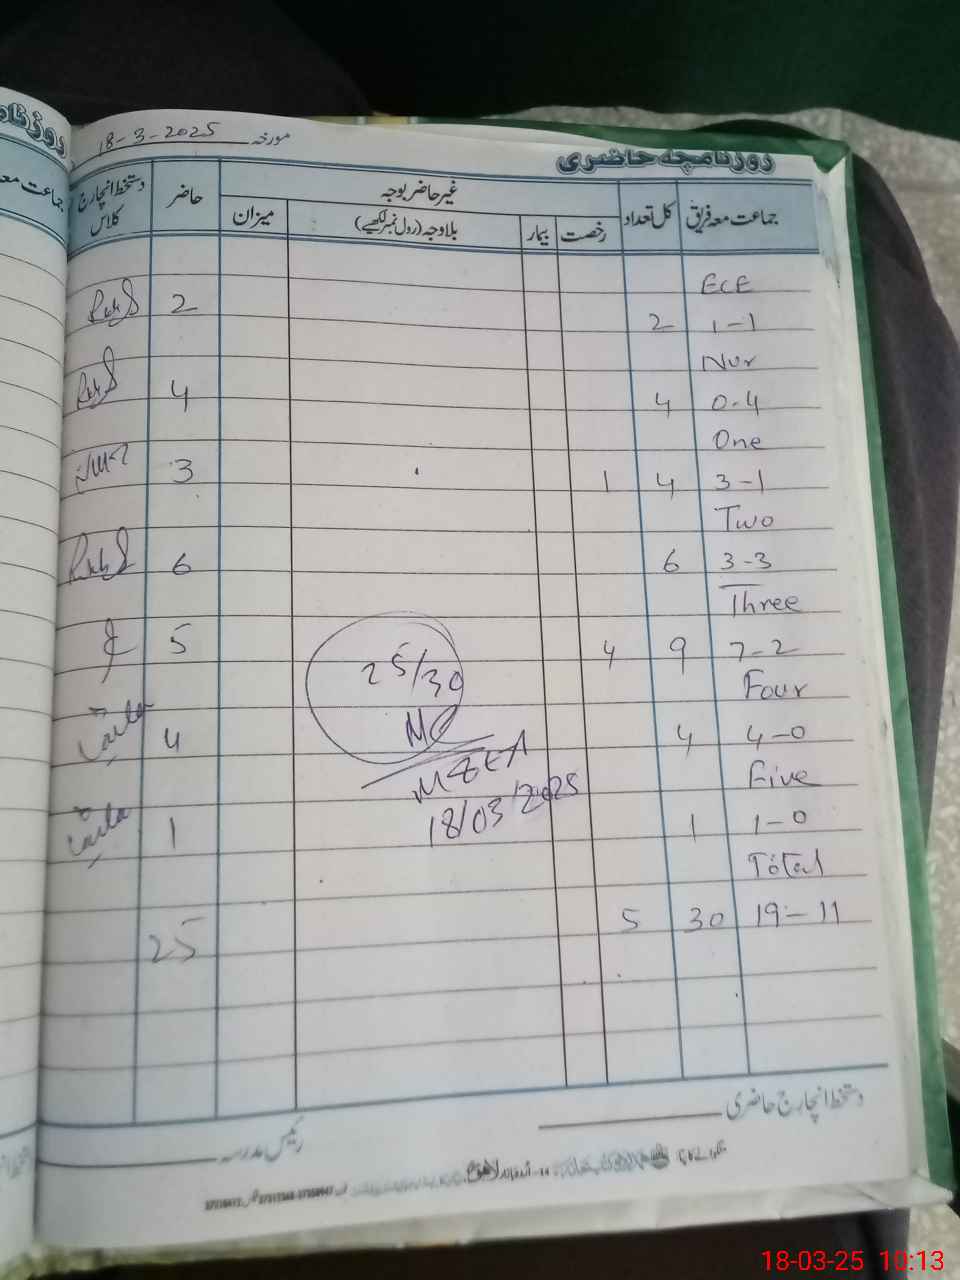 روزنامچہ حاضری
مورخہ 18-3-2025
جماعت معہ فریق کل تعداد غیر حاضر بوجہ حاضر دستخط انچارج کلاس
رخصت بیمار بلاوجہ (رول نمبر لکھیے) میزان
ECE
1-1 2 2
Nur
0-4 4 4
One
3-1 4 1 3
Two
3-3 6 6
Three
7-2 9 4 5
Four
4-0 4 4
Five
1-0 1 1
Total
19-11 30 5 25
25/30
MEA
18/03/2025
دستخط انچارج حاضری
رئیس مدرسہ
روزنامچہ
جماعت معہ
18-03-25 10:13